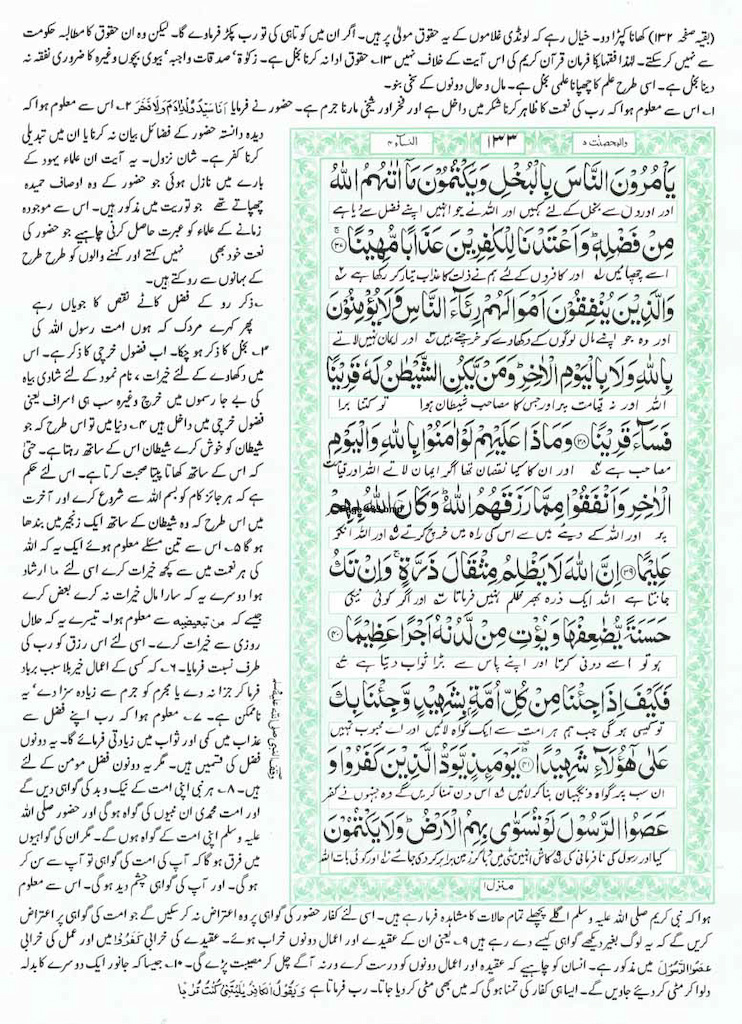 (بقیہ صفحہ ۱۳۲) کھانا کپڑا دو۔ خیال رہے کہ لونڈی غلاموں کے یہ حقوق مولیٰ پر ہیں۔ اگر ان میں کوتاہی کی تو رب پکڑ فرماوے گا۔ لیکن وہ ان حقوق کا مطالبہ حکومت
سے نہیں کر سکتے۔ لہٰذا فقہا کا فرمان قرآن کریم کی اس آیت کے خلاف نہیں ۱۳؎ حقوق ادا نہ کرنا بخل ہے۔ زکوٰۃ، صدقات واجبہ، بیوی بچوں وغیرہ کا ضروری نفقہ نہ
دینا بخل ہے۔ اسی طرح علم کا چھپانا علمی بخل ہے۔ مال و حال دونوں کے سخی بنو۔
۱؎ اس سے معلوم ہوا کہ رب کی نعمت کا ظاہر کرنا شکر میں داخل ہے اور فخر اور شیخی مارنا جرم ہے۔ حضور نے فرمایا اَنَا سَیِّدُ وُلْدِ اٰدَمَ وَلَا فَخَرَ ۲؎ اس سے معلوم ہوا کہ
دیدہ دانستہ حضور کے فضائل بیان نہ کرنا یا ان میں تبدیلی
کرنا کفر ہے۔ شان نزول۔ یہ آیت ان علماء یہود کے
بارے میں نازل ہوئی جو حضور کے وہ اوصاف حمیدہ
چھپاتے تھے جو توریت میں مذکور ہیں۔ اس سے موجودہ
زمانے کے علماء کو عبرت حاصل کرنی چاہیے جو حضور کی
نعت خود بھی نہیں کہتے اور کہنے والوں کو طرح طرح
کے بہانوں سے روکتے ہیں۔
ذکر رو کے فضل کاٹے نقص کا جویاں رہے
پھر کہے مردک کہ ہوں امت رسول اللہ کی
۳؎ بخل کا ذکر ہو چکا۔ اب فضول خرچی کا ذکر ہے۔ اس
میں دکھاوے کے لئے خیرات، نام نمود کے لئے شادی بیاہ
کی بے جا رسموں میں خرچ وغیرہ سب ہی اسراف یعنی
فضول خرچی میں داخل ہیں ۴؎ دنیا میں تو اس طرح کہ جو
شیطان کو خوش کرے شیطان اس کے ساتھ رہتا ہے۔ حتیٰ
کہ اس کے ساتھ کھاتا پیتا صحبت کرتا ہے۔ اس لئے حکم
ہے کہ ہر جائز کام کو بسم اللہ سے شروع کرے اور آخرت
میں اس طرح کہ وہ شیطان کے ساتھ ایک زنجیر میں بندھا
ہو گا ۵؎ اس سے تین مسئلے معلوم ہوئے ایک یہ کہ اللہ
کی ہر نعمت میں سے کچھ خیرات کرے اسی لئے ما ارشاد
ہوا دوسرے یہ کہ سارا مال خیرات نہ کرے بعض کرے
جیسے کہ من تبعیضیہ سے معلوم ہوا۔ تیسرے یہ کہ حلال
روزی سے خیرات کرے۔ اسی لئے اس رزق کو رب کی
طرف نسبت فرمایا۔ ۶؎ کہ کسی کے اعمال خیر بلا سبب برباد
فرما کر جزا نہ دے یا مجرم کو جرم سے زیادہ سزا دے، یہ
ناممکن ہے۔ ۷؎ معلوم ہوا کہ رب اپنے فضل سے
عذاب میں کمی اور ثواب میں زیادتی فرمائے گا۔ یہ دونوں
فضل کی قسمیں ہیں۔ مگر یہ دونوں فضل مومن کے لئے
ہیں۔ ۸؎ ہر نبی اپنی امت کے نیک و بد کی گواہی دیں گے
اور امت محمدی ان نبیوں کی گواہ ہو گی اور حضور صلی اللہ
علیہ وسلم اپنی امت کے گواہ ہوں گے۔ مگر ان کی گواہیوں
میں فرق ہو گا کہ آپ کی امت کی گواہی تو آپ سے سن کر
ہو گی۔ اور آپ کی گواہی چشم دید ہو گی۔ اس سے معلوم
والمحصنت ۵
۱۳۳
النساء ۴
یَاْمُرُوْنَ النَّاسَ بِالْبُخْلِ وَیَكْتُمُوْنَ مَاۤ اٰتٰىهُمُ اللّٰهُ
اور اوروں سے بخل کے لئے کہیں اور اللہ نے جو انہیں اپنے فضل سے دیا ہے
مِنْ فَضْلِهٖؕ وَاَعْتَدْنَا لِلْكٰفِرِیْنَ عَذَابًا مُّهِیْنًا ﴿۳۷﴾
اسے چھپائیں اور کافروں کے لئے ہم نے ذلت کا عذاب تیار کر رکھا ہے
وَالَّذِیْنَ یُنْفِقُوْنَ اَمْوَالَهُمْ رِئَآءَ النَّاسِ وَلَا یُؤْمِنُوْنَ
اور وہ جو اپنے مال لوگوں کے دکھاوے کو خرچتے ہیں اور ایمان نہیں لاتے
بِاللّٰهِ وَلَا بِالْیَوْمِ الْاٰخِرِؕ وَمَنْ یَّكُنِ الشَّیْطٰنُ لَهٗ قَرِیْنًا
اللہ اور نہ قیامت پر اور جس کا مصاحب شیطان ہوا تو کتنا برا
فَسَآءَ قَرِیْنًا ﴿۳۸﴾ وَمَاذَا عَلَیْهِمْ لَوْ اٰمَنُوْا بِاللّٰهِ وَالْیَوْمِ
مصاحب ہے اور ان کا کیا نقصان تھا اگر ایمان لاتے اللہ اور قیامت
الْاٰخِرِ وَاَنْفَقُوْا مِمَّا رَزَقَهُمُ اللّٰهُؕ وَكَانَ اللّٰهُ بِهِمْ
پر اور اللہ کے دیئے میں سے اس کی راہ میں خرچ کرتے اور اللہ انکو
عَلِیْمًا ﴿۳۹﴾ اِنَّ اللّٰهَ لَا یَظْلِمُ مِثْقَالَ ذَرَّةٍۚ وَاِنْ تَكُ
جانتا ہے اللہ ایک ذرہ بھر ظلم نہیں فرماتا اور اگر کوئی نیکی
حَسَنَةً یُّضٰعِفْهَا وَیُؤْتِ مِنْ لَّدُنْهُ اَجْرًا عَظِیْمًا ﴿۴۰﴾
ہو تو اسے دونی کرتا اور اپنے پاس سے بڑا ثواب دیتا ہے
فَكَیْفَ اِذَا جِئْنَا مِنْ كُلِّ اُمَّةٍۭ بِشَهِیْدٍ وَّجِئْنَا بِكَ
تو کیسی ہو گی جب ہم ہر امت سے ایک گواہ لائیں اور اے محبوب تمہیں
عَلٰى هٰۤؤُلَآءِ شَهِیْدًا ﴿۴۱﴾ یَوْمَىِٕذٍ یَّوَدُّ الَّذِیْنَ كَفَرُوْا وَ
ان سب پر گواہ و نگہبان بنا کر لائیں اس دن تمنا کریں گے وہ جنہوں نے کفر
عَصَوُا الرَّسُوْلَ لَوْ تُسَوّٰى بِهِمُ الْاَرْضُؕ وَلَا یَكْتُمُوْنَ
کیا اور رسول کی نافرمانی کی کاش انہیں مٹی میں دبا کر زمین برابر کر دی جائے اور کوئی بات اللہ
منزل ۱
ہوا کہ نبی کریم صلی اللہ علیہ وسلم اگلے پچھلے تمام حالات کا مشاہدہ فرما رہے ہیں۔ اسی لئے کفار حضور کی گواہی پر وہ اعتراض نہ کر سکیں گے جو امت کی گواہی پر اعتراض
کریں گے کہ یہ لوگ بغیر دیکھے گواہی کیسے دے رہے ہیں ۹؎ یعنی ان کے عقیدے اور اعمال دونوں خراب ہوئے۔ عقیدے کی خرابی کَفَرُوْا میں اور عمل کی خرابی
عَصَوُا الرَّسُوْلَ میں مذکور ہے۔ انسان کو چاہیے کہ عقیدہ اور اعمال دونوں کو درست کرے ورنہ آگے چل کر مصیبت پڑے گی۔ ۱۰؎ جیسا کہ جانور ایک دوسرے کا بدلہ
دلوا کر مٹی کر دیئے جاویں گے۔ ایسا ہی کفار کی تمنا ہو گی کہ میں بھی مٹی کر دیا جاتا۔ رب فرماتا ہے وَیَقُوْلُ الْكَافِرُ یٰلَیْتَنِیْ كُنْتُ تُرٰبًا